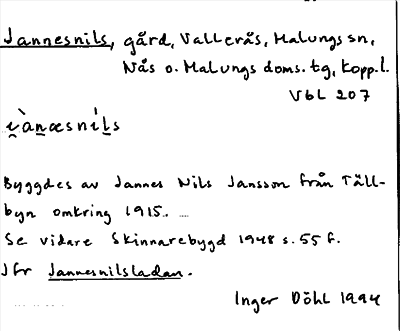 Jannesnils, gård, Vallerås, Malungs sn,
Nås o. Malungs doms. tg, Kopp. l.
Vbl 207
i̯ànæsníls
Byggdes av Jannes Nils Jansson från Täll-
byn omkring 1915. ....
Se vidare Skinnarebygd 1948 s. 55 f.
Jfr Jannesnilsladan.
Inger Döhl 1994